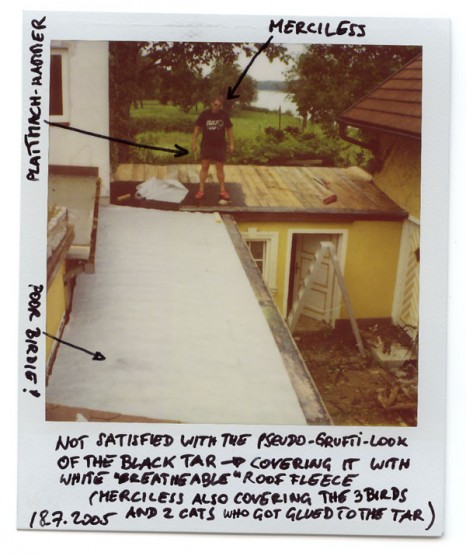 MERCILESS
PLATTMACH-HAMMER
POOR BIRDIE!
NOT SATISFIED WITH THE PSEUDO-GRUFTI-LOOK
OF THE BLACK TAR → COVERING IT WITH
WHITE "BREATHEABLE" ROOF FLEECE
(MERCILESS ALSO COVERING THE 3 BIRDS
18.7.2005 AND 2 CATS WHO GOT GLUED TO THE TAR)